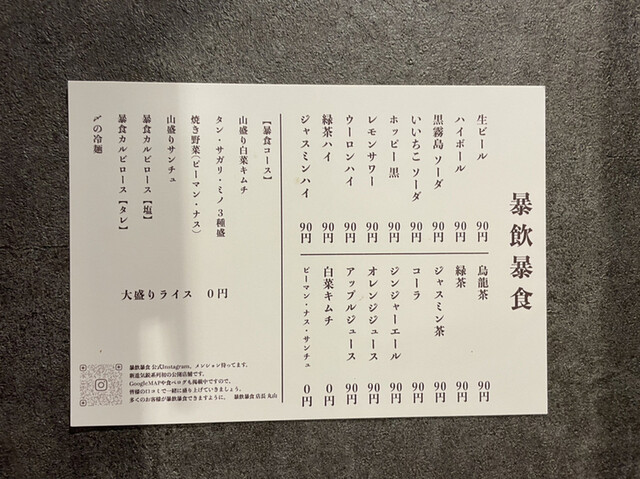 暴飲暴食
生ビール 90円
ハイボール 90円
黒霧島 ソーダ 90円
いいちこ ソーダ 90円
ホッピー黒 90円
レモンサワー 90円
ウーロンハイ 90円
緑茶ハイ 90円
ジャスミンハイ 90円
烏龍茶 90円
緑茶 90円
ジャスミン茶 90円
コーラ 90円
ジンジャーエール 90円
オレンジジュース 90円
アップルジュース 90円
白菜キムチ 0円
ピーマン・ナス・サンチュ 0円
【暴食コース】
山盛り白菜キムチ
タン・サガリ・ミノ3種盛
焼き野菜(ピーマン・ナス)
山盛りサンチュ
暴食カルビロース【塩】
暴食カルビロース【タレ】
〆の冷麺
大盛りライス 0円
暴飲暴食 公式Instagram、メンション待ってます。
新進気鋭系列初の公園店舗です。
GoogleMAPや食べログも掲載中ですので、
皆様の口コミで一緒に盛り上げていきましょう。
多くのお客様が暴飲暴食できますように。 暴飲暴食 店長 丸山